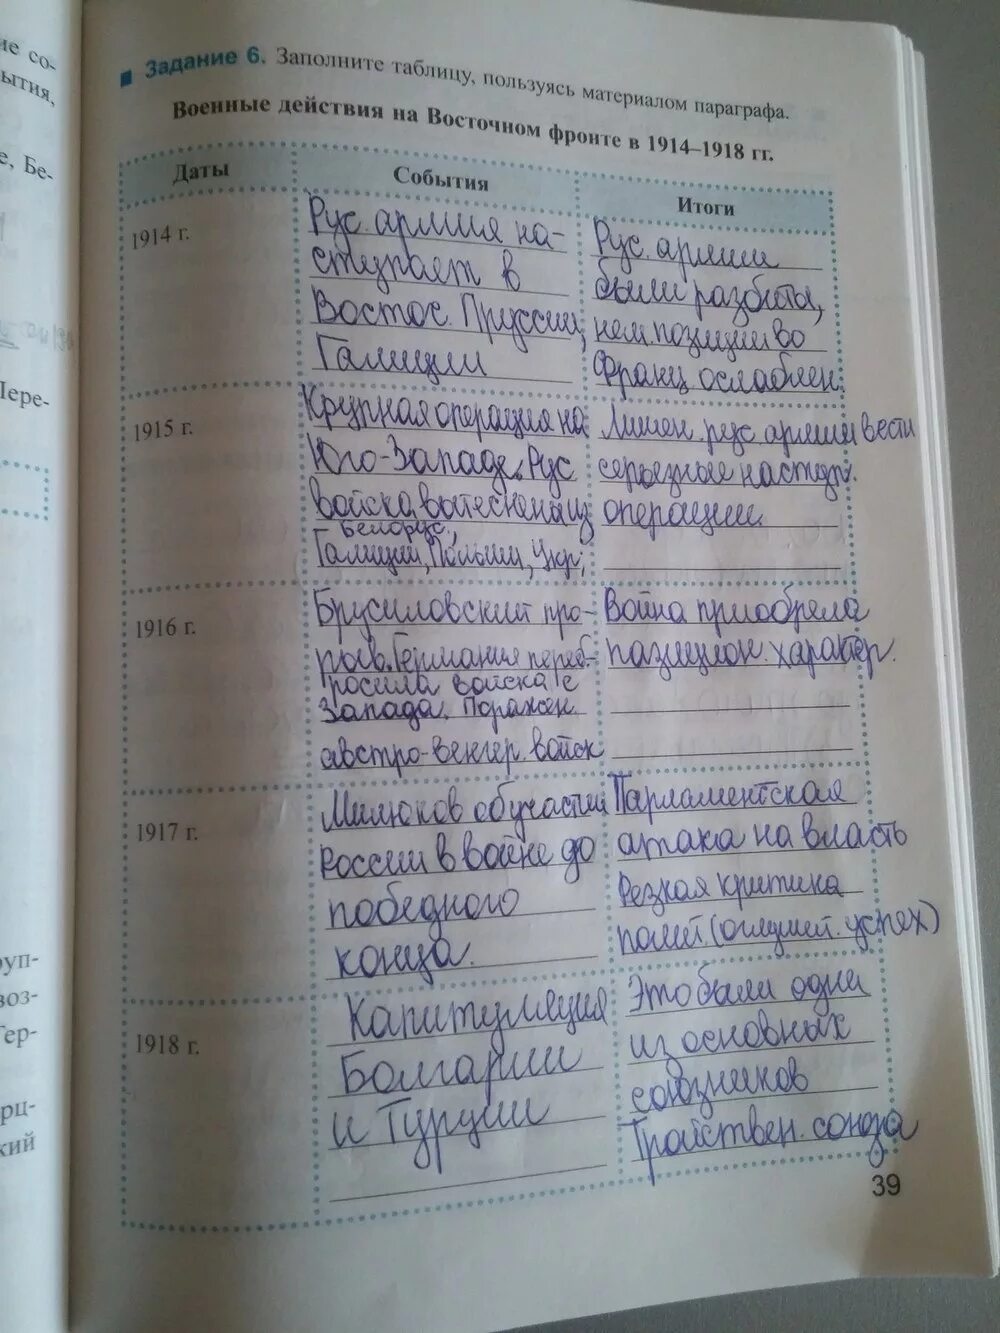 ие со-
ытия,
е, Бе-
Пере-
руп-
воз-
Гер-
рц-
кий
Задание 6. Заполните таблицу, пользуясь материалом параграфа.
Военные действия на Восточном фронте в 1914–1918 гг.
Даты
События
Итоги
1914 г.
Рус. армия на-
ступает в
Восточ. Пруссии,
Галиции
Рус. армии
были разбиты,
нем. позиции во
Франц ослаблен.
1915 г.
Крупная операция на
Юго-Западе. Рус
войска вытеснена из
Белорус.,
Галиции, Польши, Укр,
Лишен. рус армии вести
серьезные наступ.
операции.
1916 г.
Брусиловский про-
рыв. Германия переб-
росила войска с
Запада. Поражен.
австро-венгер. войск
Война приобрела
позицион. характер.
1917 г.
Милюков об участии
России в войне до
победного
конца.
Парламентская
атака на власть
Резкая критика
1918 г.
Капитуляция
Болгарии
и Турции
Это были одни
из основных
союзников
Тройствен. союза
39